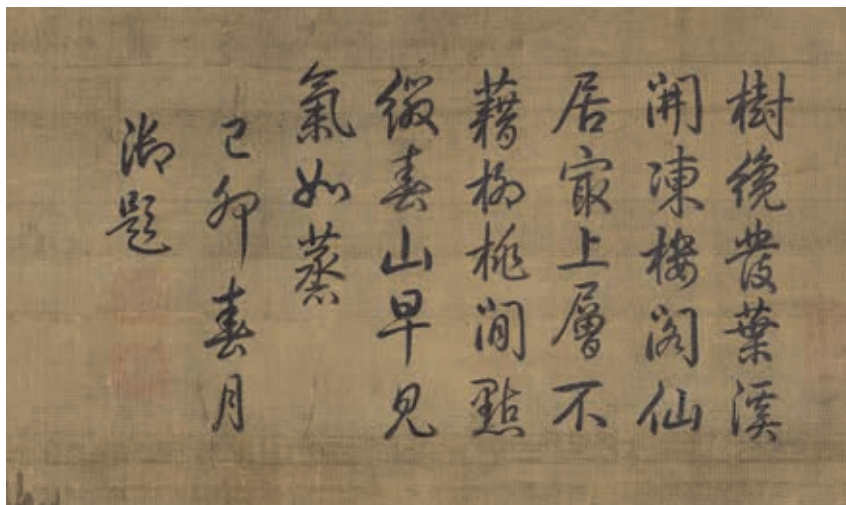 樹纔發葉溪
開凍樓閣仙
居家上層不
藉栁桃閒點
綴春山早見
氣如蒸
己卯春月
御題